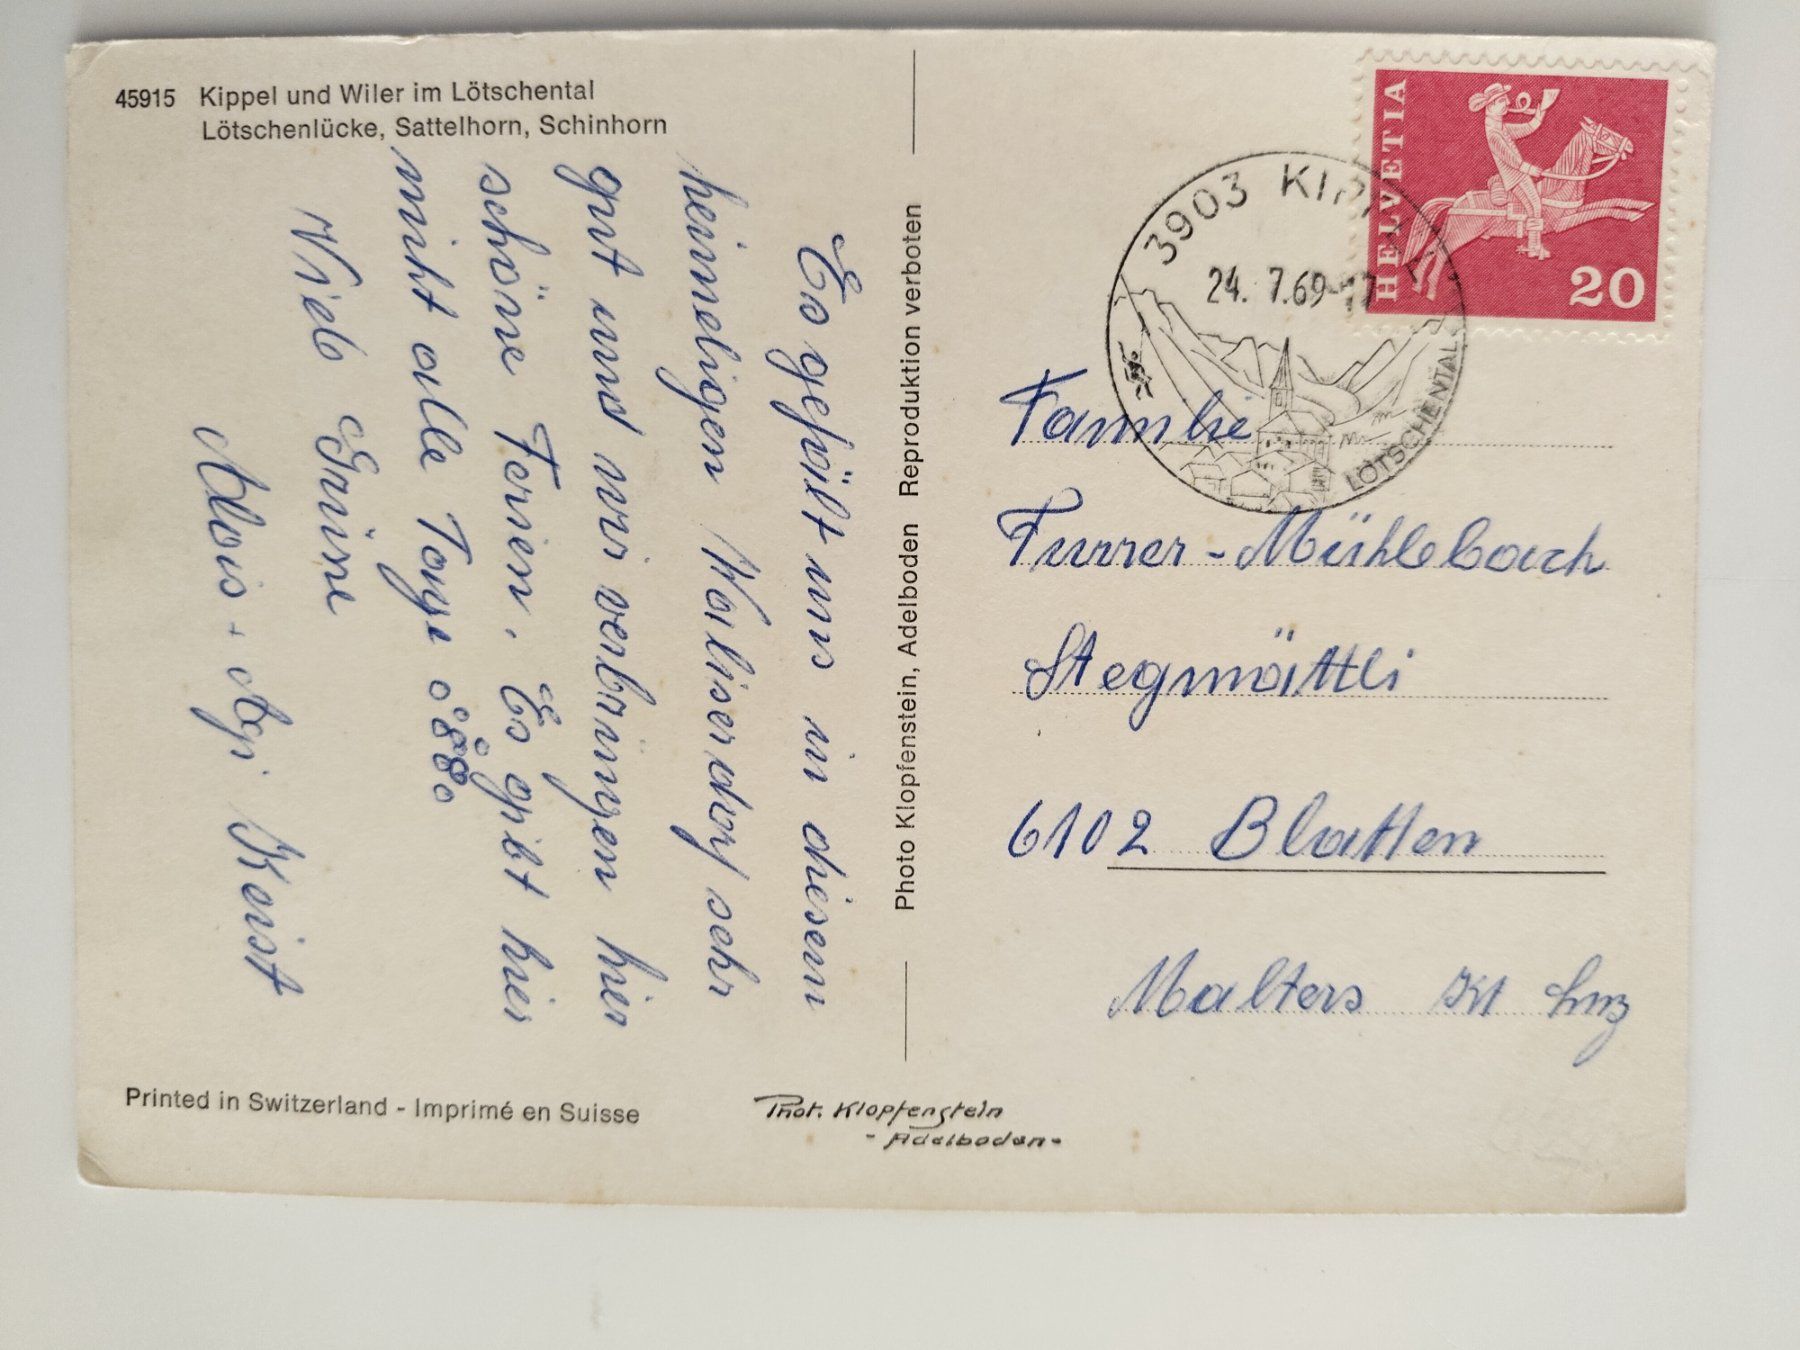 45915 Kippel und Wiler im Lötschental
Lötschenlücke, Sattelhorn, Schinhorn
Es gefällt uns in diesem
heimeligen Walliserdorf sehr
gut und wir verbringen hier
schöne Ferien. Es gibt hier
nicht alle Tage
Viele Grüsse
Alois + Agi Keist
Photo Klopfenstein, Adelboden Reproduktion verboten
HELVETIA
20
3903 KIPPEL
24. 7.69-17
LÖTSCHENTAL
Familie
Furrer-Mühlebach
Stegmättli
6102 Blatten
Malters Kt Luz
Printed in Switzerland - Imprimé en Suisse
Phot. Klopfenstein
- Adelboden -